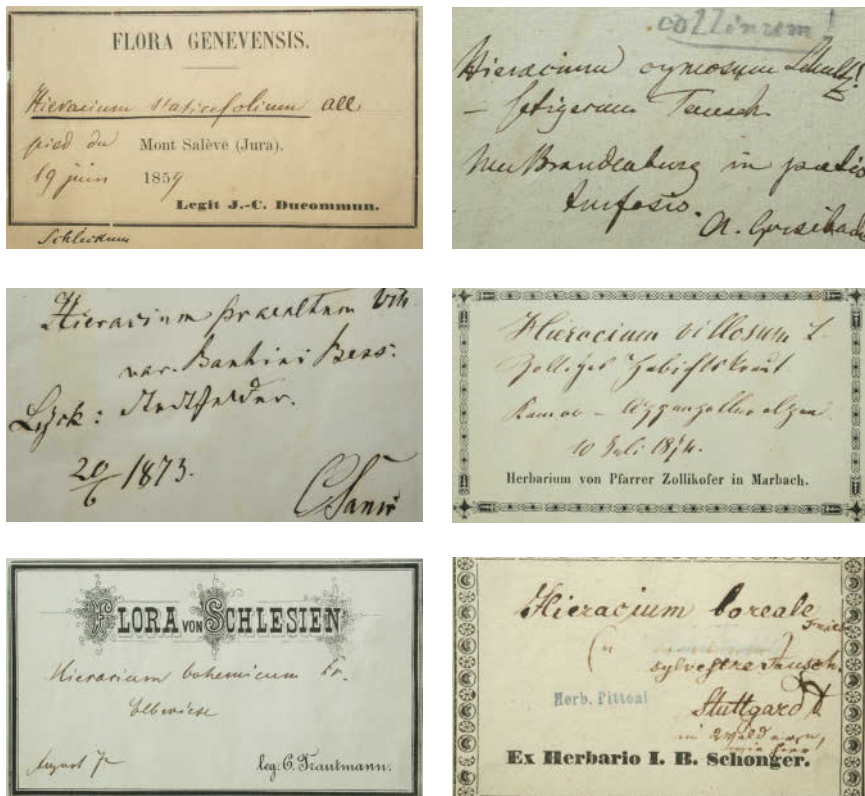 FLORA GENEVENSIS.
Hieracium staticefolium all
pied du Mont Salève (Jura).
19 juin 1859
Legit J.-C. Ducommun.
Schlickum
collinum!
Hieracium cymosum Schultz!
– setigerum Tausch.
Neu Brandenburg in pratis
turfosis.
A. Grisebach
Hieracium praealtum Vill.
var. Bauhini Bess:
Lyck:
20/6 1873.
C Sanio
Hieracium villosum L.
Zottiges Habichtskraut
Kamor – Appenzelleralpen
10 Juli 1874.
Herbarium von Pfarrer Zollikofer in Marbach.
FLORA VON SCHLESIEN
Hieracium bohemicum Fr.
Elbwiese
August 7
leg. C. Trautmann.
Hieracium boreale
Fries
sylvestre Tausch.
Herb. Pittoni
Stuttgard
in Wäldern,
Ex Herbario I. B. Schonger.